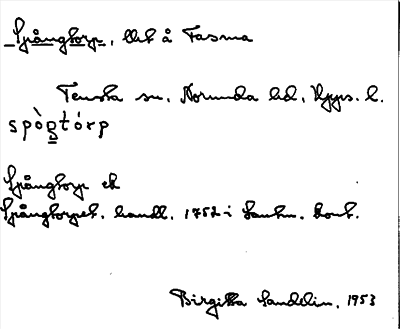 Spångtorp, lht å Tasma
Tensta sn, Norunda hd, Upps. l.
spògtórp
Spångtorp ek
Spångtorpet. handl. 1752 i Lantm. kont.
Birgitta Sandelin. 1953